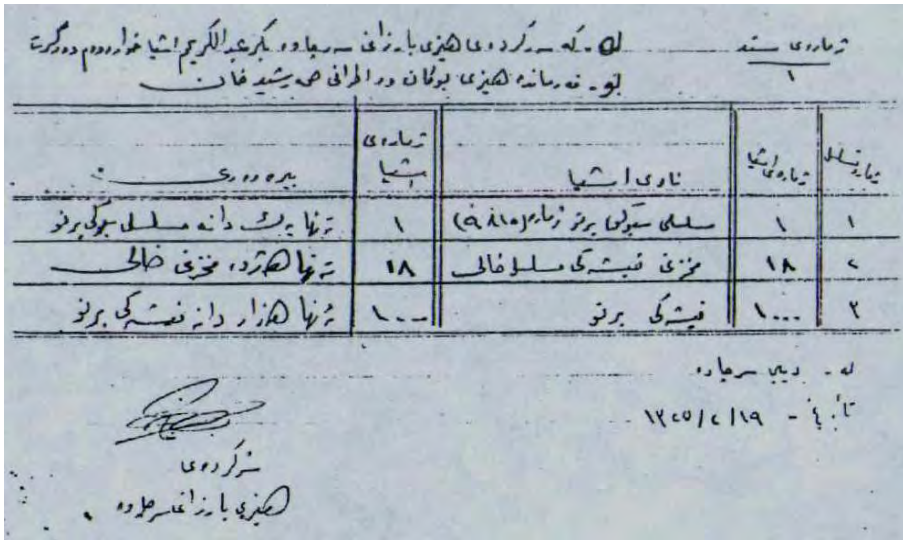 ژمارەی سند
١
لە - کە سەرکردەی هێزی بارزانی سەرچاوە بکر عبدالکریم اشیا خوارووم دورگرت
بو - فەرماندە هێزی بوکان دە اطرافی حمەرشید خان
ژمارە تسلسل | ژمارەی اشیا | ناوی اشیا | ژمارەی اشیا | بیرەوەری
١ | ١ | مسلسلی سوکی برنو ژمارە (٩٨١٥) | ١ | تەنها یەك دانە مسلسل سوکی برنو
٢ | ١٨ | مخزنی فیشەکی مسلسل خالی | ١٨ | تەنها هەژدە مخزنی خالی
٣ | ١٠٠٠ | فیشەکی برنو | ١٠٠٠ | تەنها هەزار دانە فیشەکی برنو
لە - دیی سرچاوە
تأریخ - ١٣٢٥/٢/١٩
سرکردەی
هێزی بارزانی سرچاوە